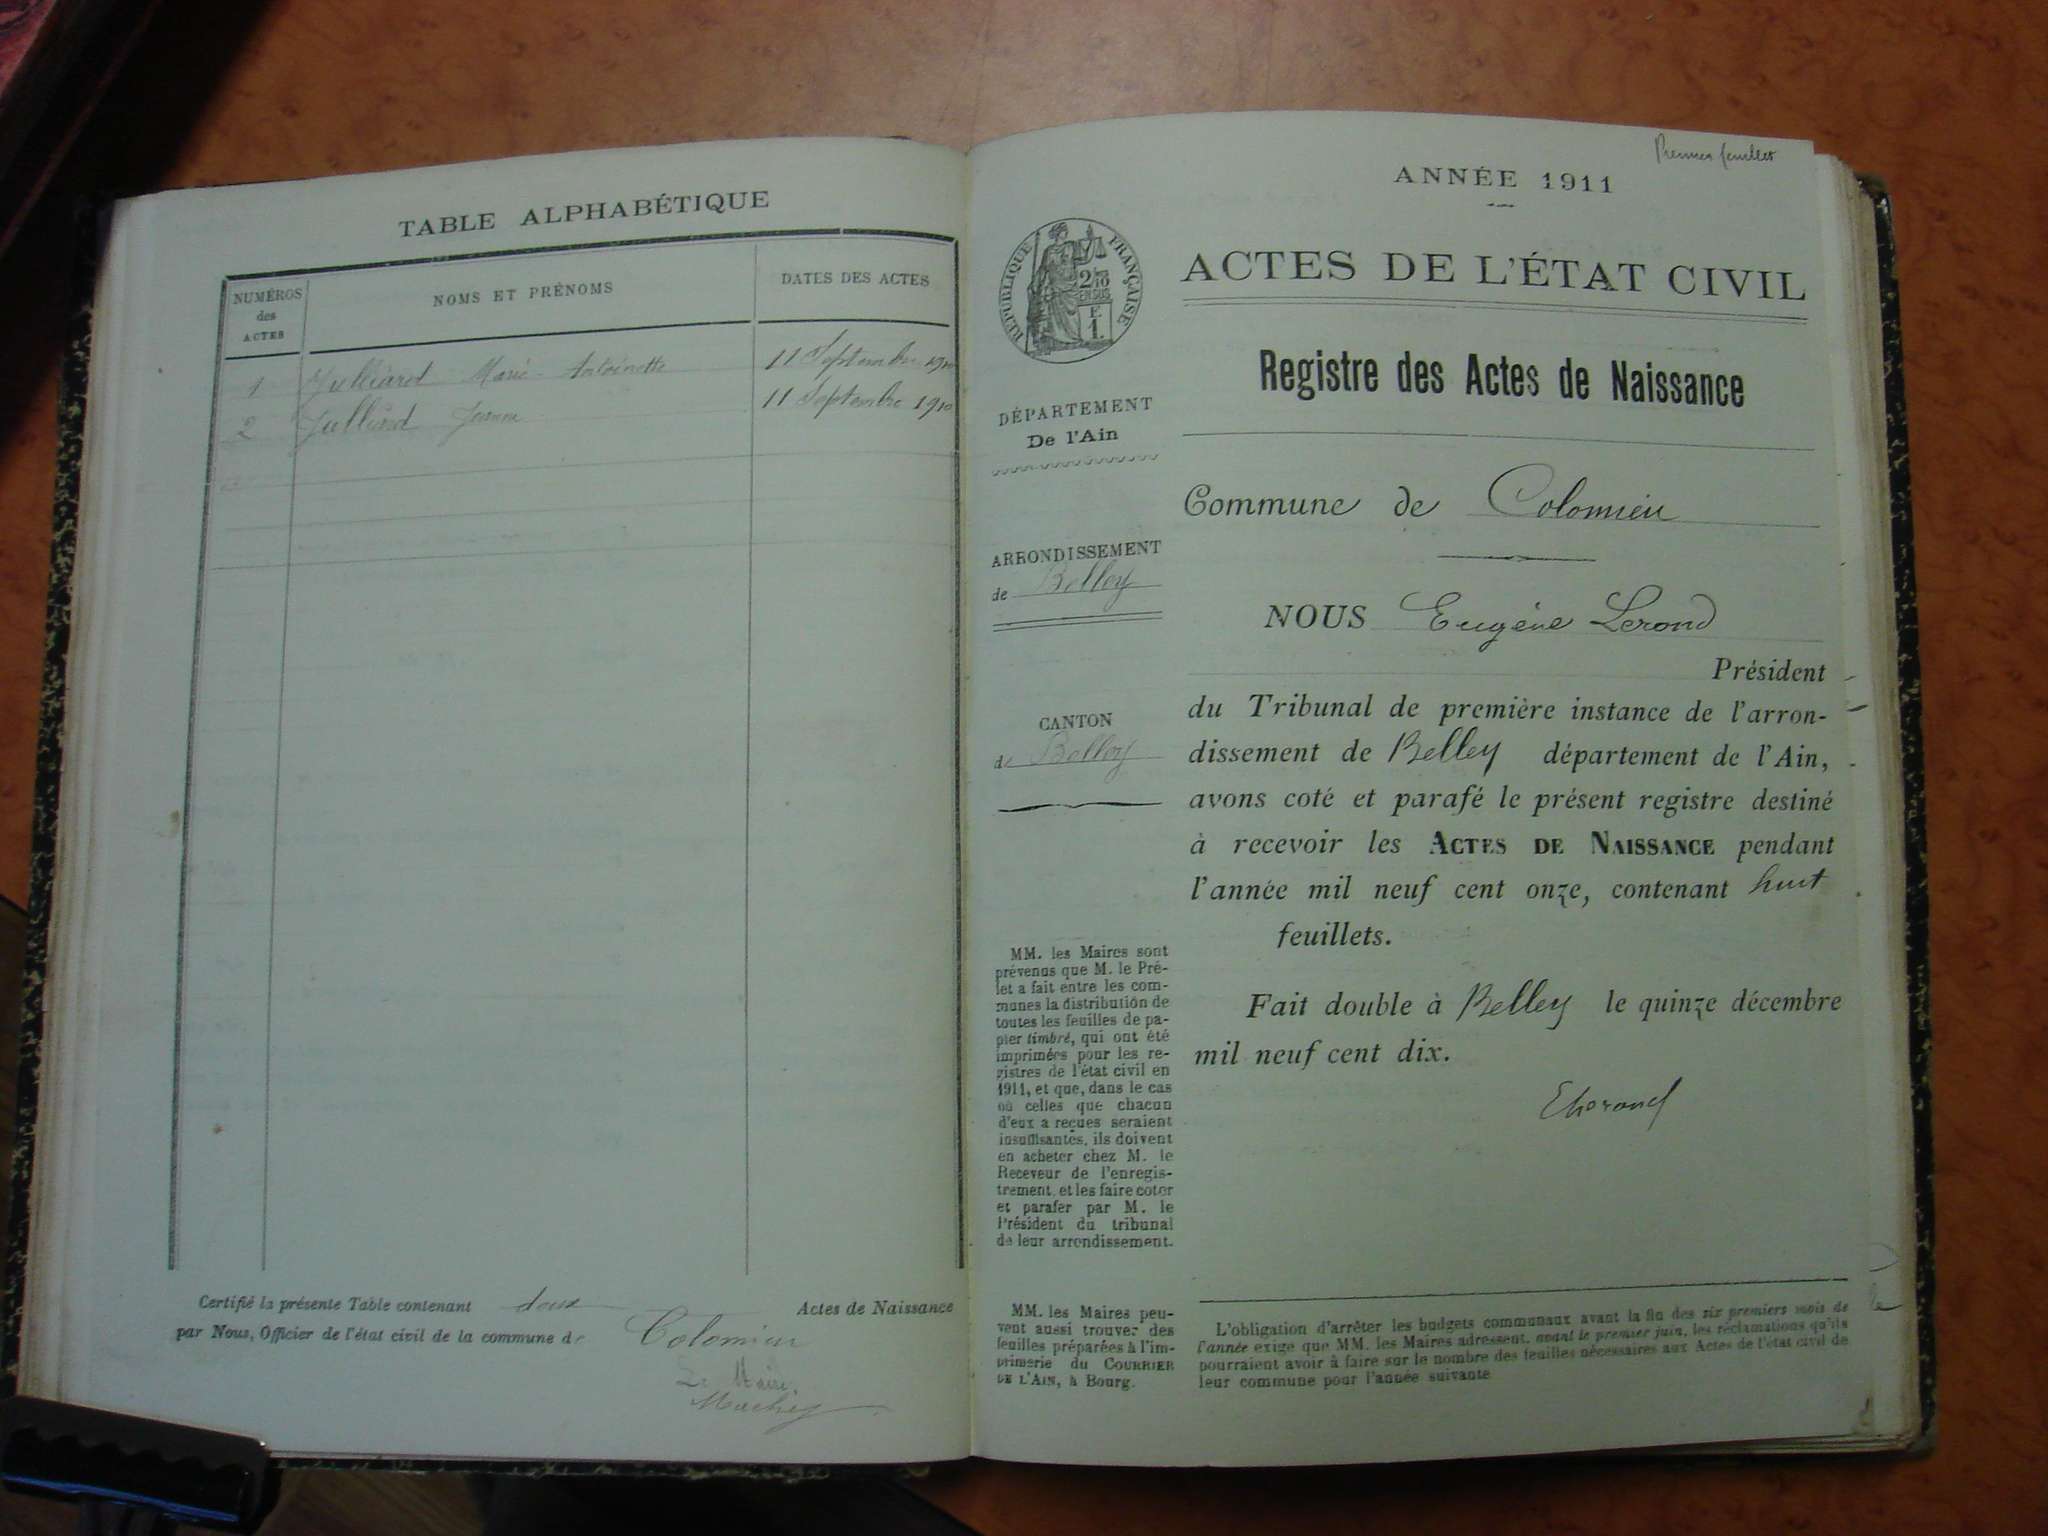 TABLE ALPHABÉTIQUE
NUMÉROS
des
ACTES
NOMS ET PRÉNOMS
DATES DES ACTES
1 Julliard Marie-Antoinette 11 Septembre 1910
2 Julliard Jeanne 11 Septembre 1910
Certifié la présente Table contenant deux Actes de Naissance
par Nous, Officier de l'état civil de la commune de Colomieu
Le Maire,
Premier feuillet
ANNÉE 1911
RÉPUBLIQUE FRANÇAISE
ACTES DE L'ÉTAT CIVIL
Registre des Actes de Naissance
DÉPARTEMENT
De l'Ain
ARRONDISSEMENT
de Belley
CANTON
de Belley
MM. les Maires sont
prévenus que M. le Pré-
fet a fait entre les com-
munes la distribution de
toutes les feuilles de pa-
pier timbré, qui ont été
imprimées pour les re-
gistres de l'état civil en
1911, et que, dans le cas
où celles que chacun
d'eux a reçues seraient
insuffisantes, ils doivent
en acheter chez M. le
Receveur de l'enregis-
trement, et les faire coter
et parafer par M. le
Président du tribunal
de leur arrondissement.
MM. les Maires peu-
vent aussi trouver des
feuilles préparées à l'im-
primerie du COURRIER
DE L'AIN, à Bourg.
Commune de Colomieu
NOUS Eugène Lerond
Président
du Tribunal de première instance de l'arron-
dissement de Belley département de l'Ain,
avons coté et parafé le présent registre destiné
à recevoir les ACTES DE NAISSANCE pendant
l'année mil neuf cent onze, contenant huit
feuillets.
Fait double à Belley le quinze décembre
mil neuf cent dix.
ELerond
L'obligation d'arrêter les budgets communaux avant la fin des six premiers mois de
l'année exige que MM. les Maires adressent, avant le premier juin, les réclamations qu'ils
pourraient avoir à faire sur le nombre des feuilles nécessaires aux Actes de l'état civil de
leur commune pour l'année suivante